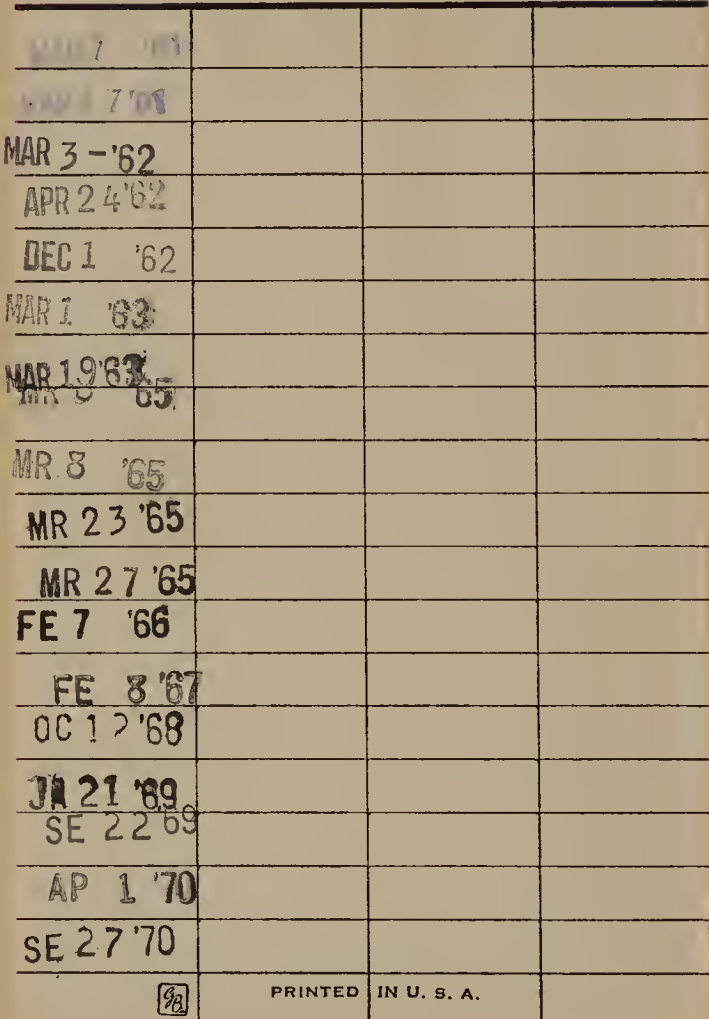 7
7 '61
MAR 3 - '62
APR 24 '62
DEC 1 '62
MAR 1 '63
MAR 19 '63
MR 8 '65
MR 8 '65
MR 23 '65
MR 27 '65
FE 7 '66
FE 8 '67
OC 12 '68
JA 21 '69
SE 22 '69
AP 1 '70
SE 27 '70
GB PRINTED IN U. S. A.